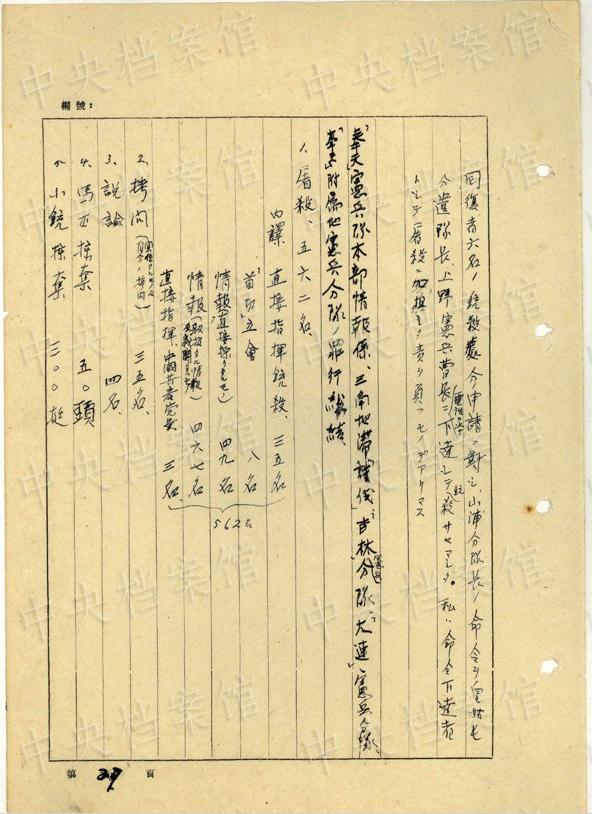 編號：
同復者六名ノ銃殺處分申請ニ對シ、山浦分隊長ノ命令ヲ
分遣隊長上野憲兵曹長ニ電話ニテ下達シテ銃殺サセマシタ。私ハ命令下達者
トシテ屠殺ニ加担シタ責ヲ負フモノデアリマス
「奉天」憲兵隊本部情報係、三角地帯討伐、吉林憲兵分隊、「大連」憲兵分隊、
「奉天」附属地憲兵分隊ノ罪行総結
1、屠殺、五六二名、
内譯 直接指揮銃殺、三五名
首切立會 八名
情報(直接採リタルモノ) 四九名
情報 四六七名
直接指揮、中国共産党員 三名
562名
2、拷問 三五名、
3、説諭 四名、
4、馬匹掠奪 五〇頭
5、小銃掠奪 三〇〇挺
第 29 頁
中央档案馆